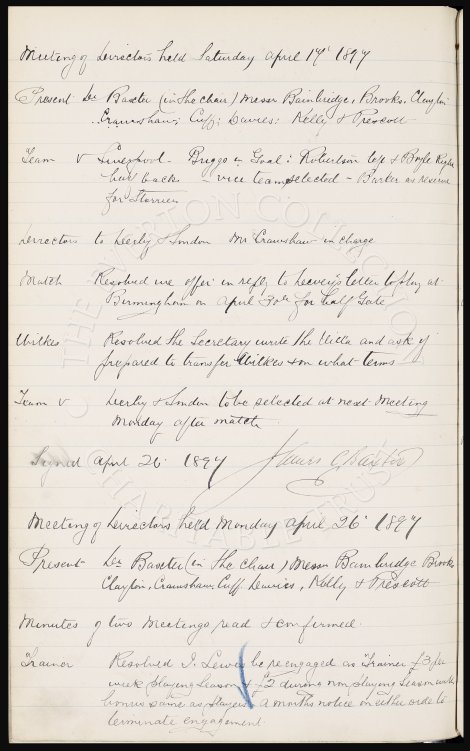 Meeting of Directors held Saturday April 17th 1897
Present Dr Baxter (in the chair) Messrs Bainbridge, Brooks, Clayton
Cramshaw; Cuff; Davies; Kelly & Prescott
Team v Liverpool. Briggs in Goal: Robertson left & Boyle Right
half backs - vice team selected - Barker as reserve
for Storrier
Directors to Derby & London Mr Cramshaw in charge
Match Resolved we offer in reply to letter to play at
Birmingham on April 30th for half Gate
Wilkes Resolved the Secretary write the Villa and ask if
prepared to transfer Wilkes & on what terms
Team v Derby & London to be selected at next Meeting
Monday after match
Signed April 26 1897 James C Baxter
Meeting of Directors held Monday April 26th 1897
Present Dr Baxter (in the chair) Messrs Bainbridge Brooks
Clayton, Cramshaw, Cuff, Davies, Kelly & Prescott
Minutes of two Meetings read & confirmed.
Trainer Resolved J. Lewis be re engaged as Trainer £3 per
week playing Season & £2 during non playing Season with
bonus same as players. A months notice on either side to
terminate engagement.
THE EVERTON COLLECTION
CHARITABLE TRUST